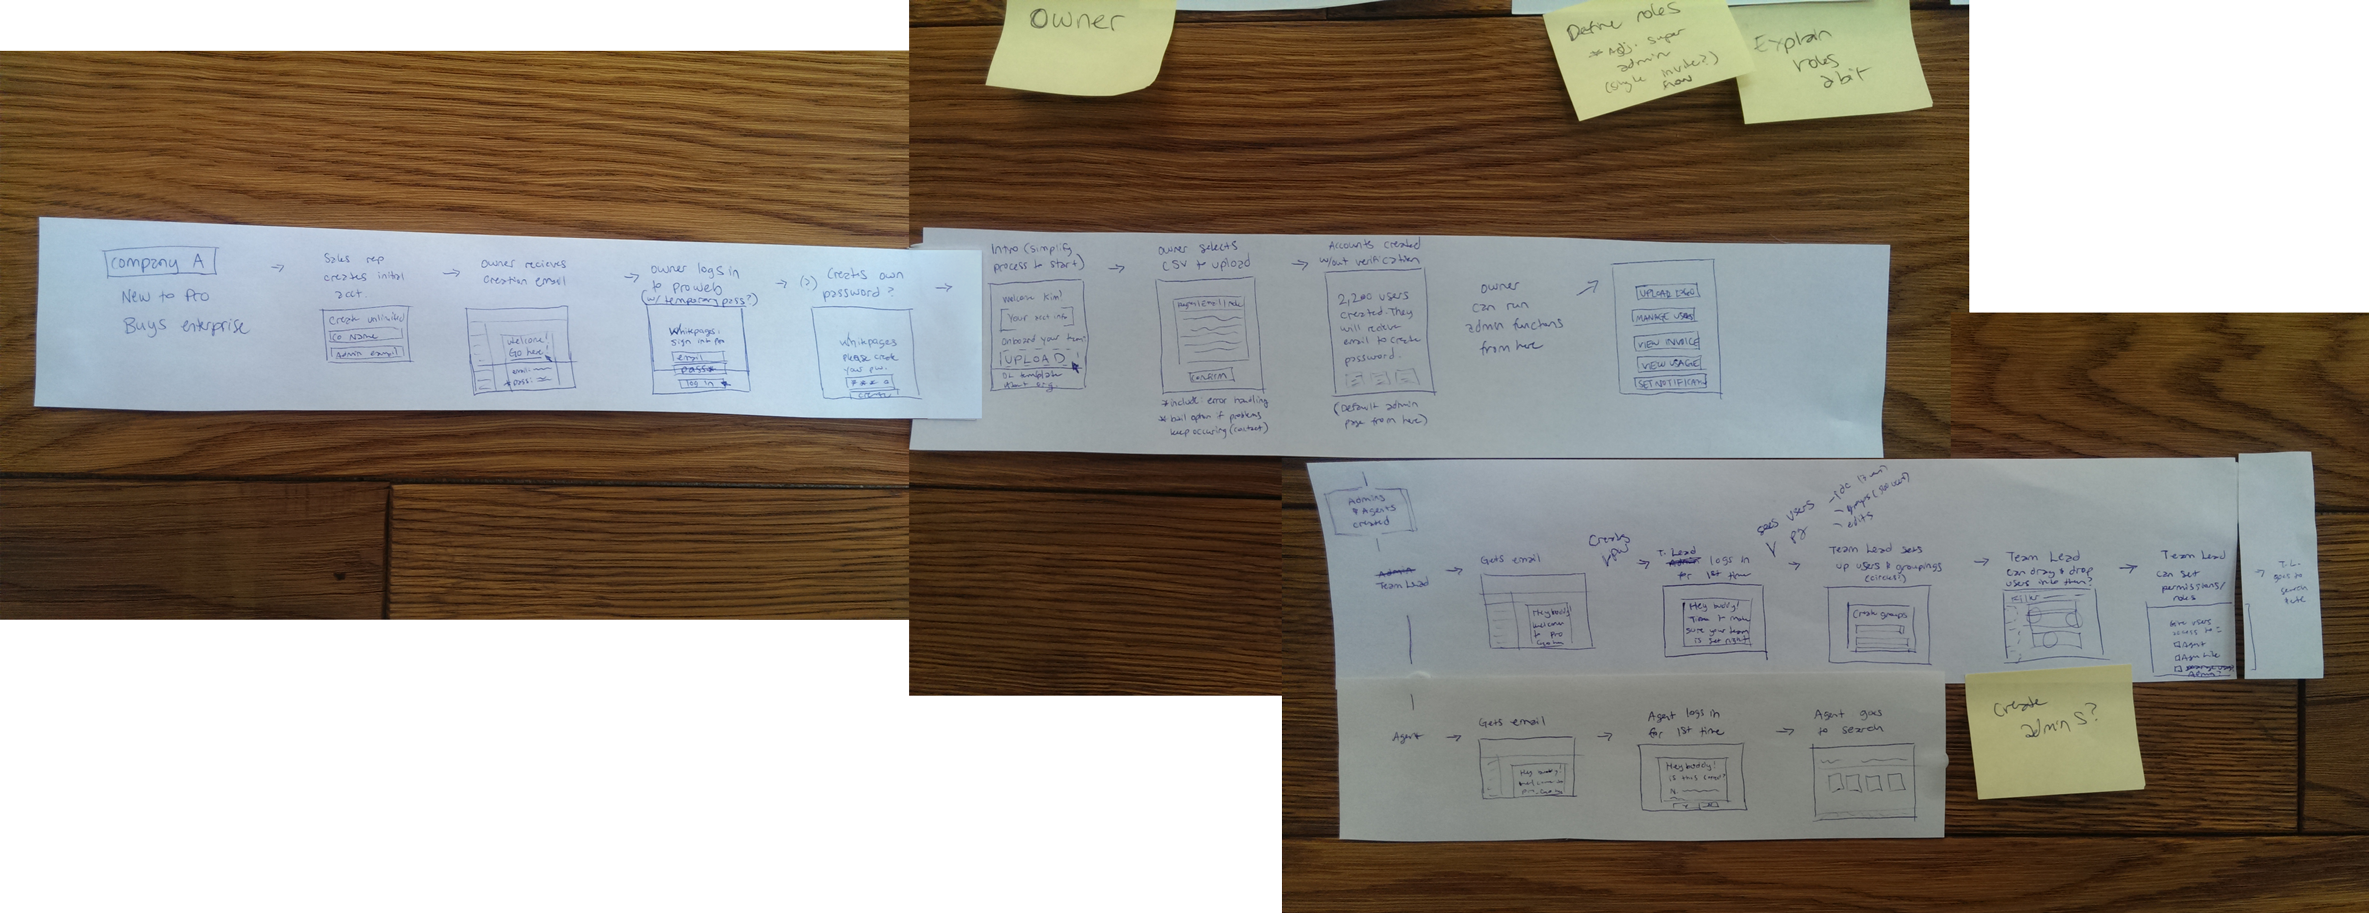 Owner
Define roles
super
admin
(single invite?)
Explain
roles
a bit
Company A
New to Pro
Buys enterprise
Sales rep
creates inital
acct.
Create unlimited
Co Name
Admin email
Owner recieves
creation email
Welcome!
Go here!
email:
pass:
Owner logs in
to proweb
(w/ temporary pass?)
Whitepages.
sign into Pro
email
pass
log in
(?) Creates own
password?
Whitepages
please create
your pw.
create
Intro (simplify
process to start)
Welcome Kim!
Your acct info
onboard your team
UPLOAD
DL template
Owner selects
CSV to upload
CONFIRM
* include: error handling
* bail option if problems
keep occuring (contact)
Accounts created
w/out verification
2,200 users
created. They
will recieve
email to create
password.
(Default admin
page from here)
Owner
can run
admin functions
from here
UPLOAD LOGO
MANAGE USERS
VIEW INVOICE
VIEW USAGE
SET NOTIFICATN
Admins
& Agents
created
Admin
Team Lead
Gets email
Hey buddy!
Welcome
to Pro
Creates
pw
T. Lead
Admin logs in
for 1st time
Hey buddy!
Time to make
sure your team
is set right
sees users
pg
- edits
Team Lead sets
up users & groupings
(circles!)
Create groups
Team Lead
can drag & drop
users into them?
Team Lead
can set
permissions/
roles
Give users
access to:
Agent
Admin?
T.L.
goes to
search
Agent
Gets email
Hey buddy!
Agent logs in
for 1st time
Hey buddy!
is this correct?
N.
Agent goes
to search
Create
admins?